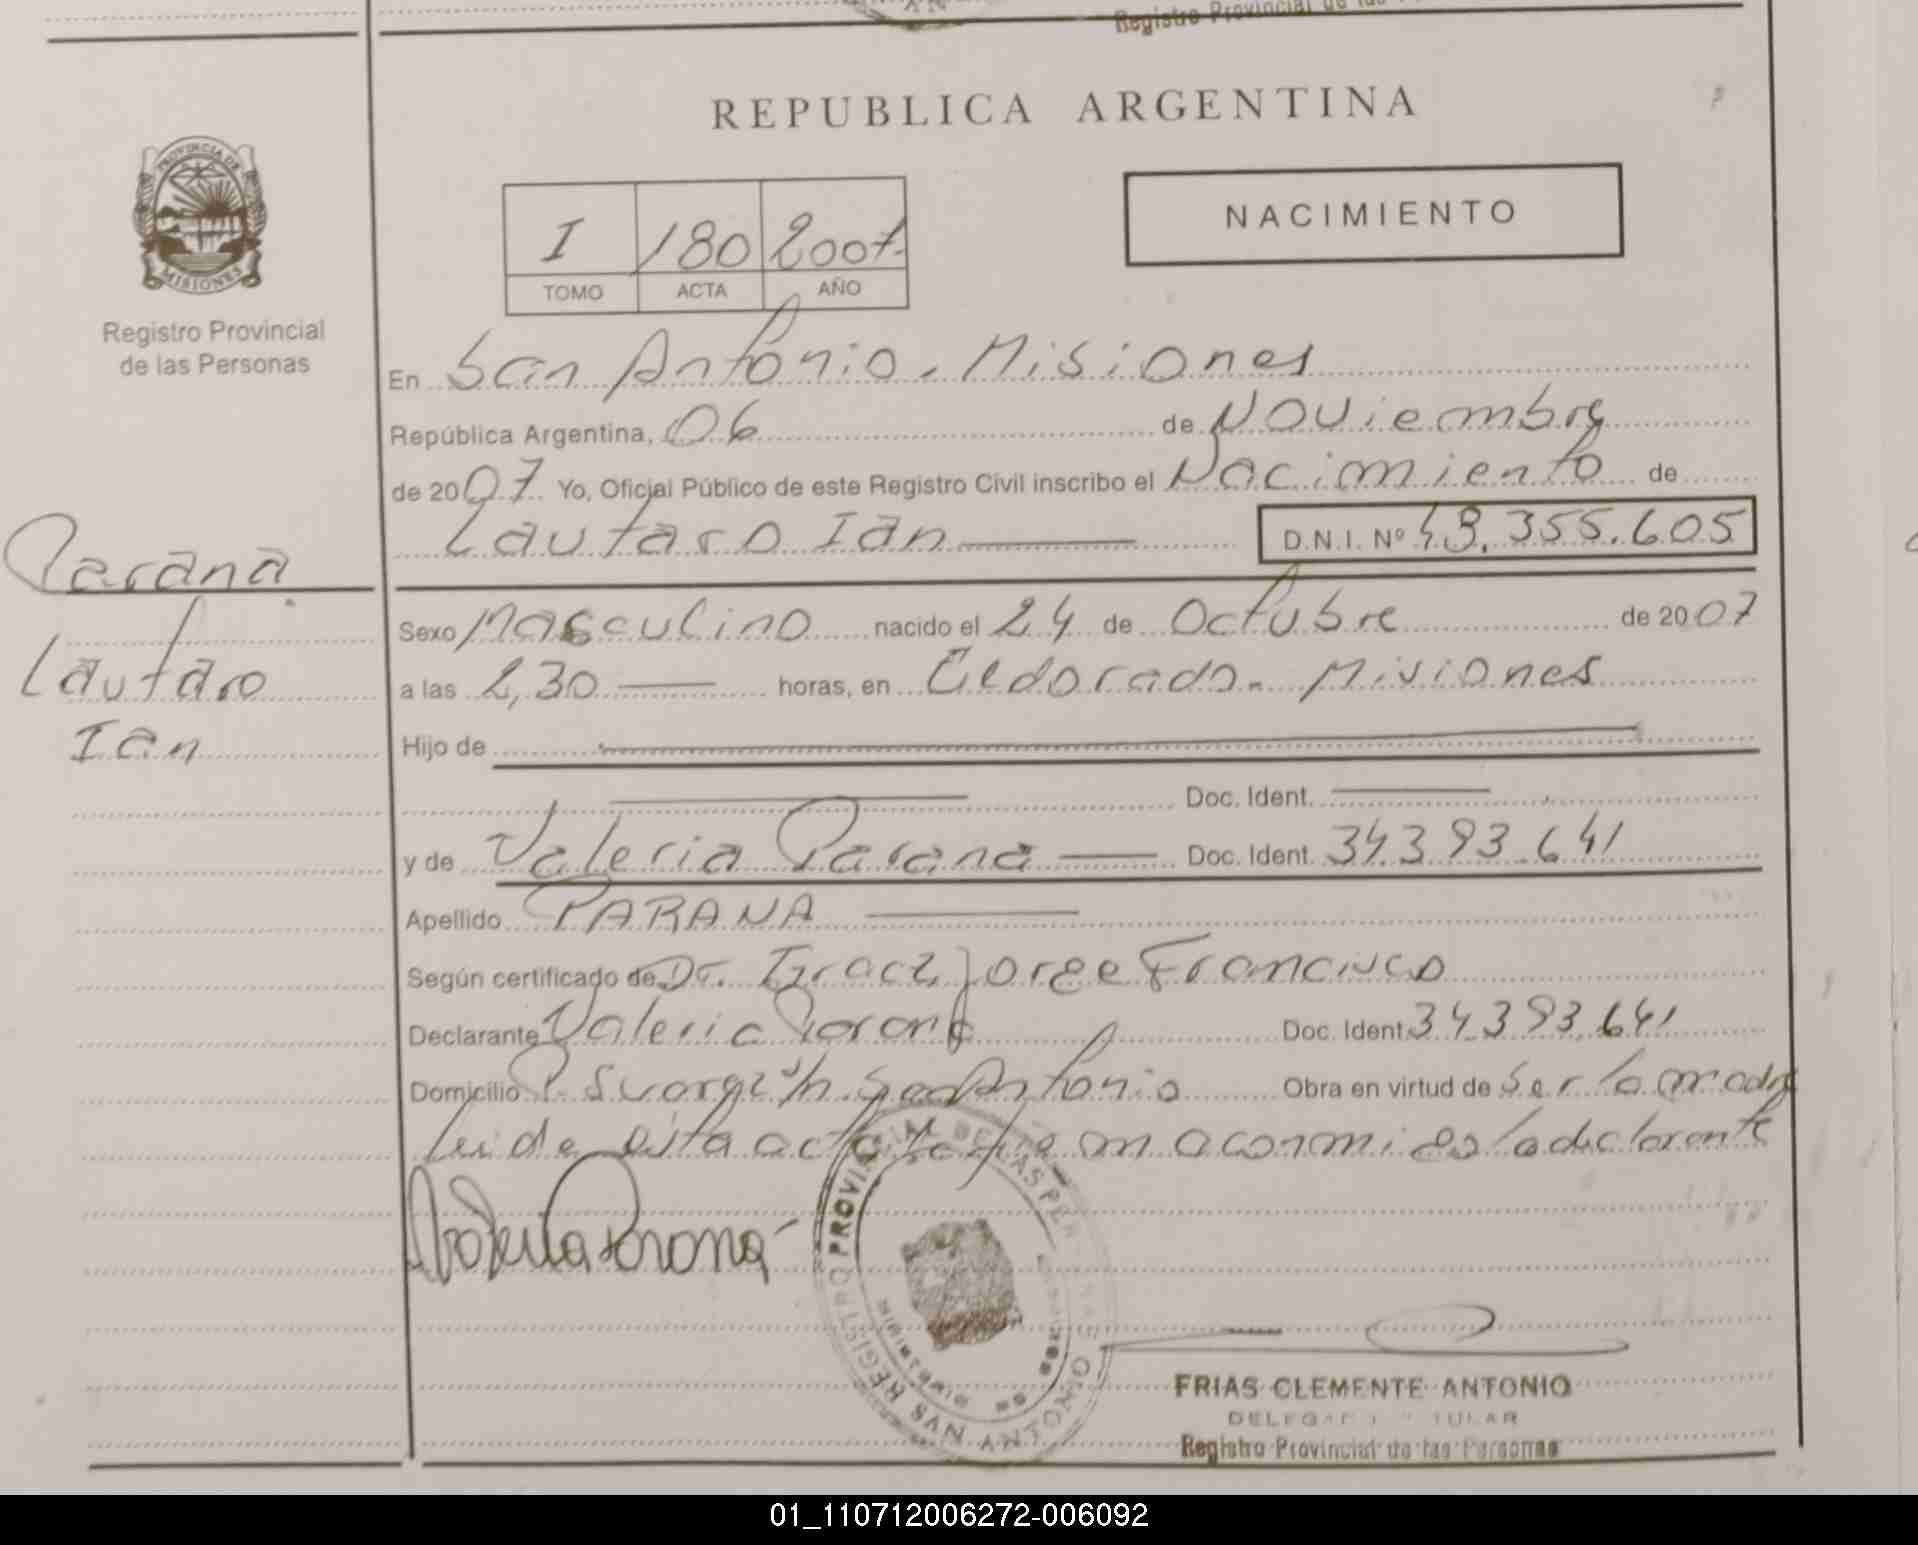 Registro Provincial de las
REPUBLICA ARGENTINA
PROVINCIA DE
MISIONES
Registro Provincial
de las Personas
NACIMIENTO
I 180 2007
TOMO ACTA AÑO
En San Antonio. Misiones
República Argentina, 06 de Noviembre
de 2007 Yo, Oficial Público de este Registro Civil inscribo el Nacimiento de
Lautaro Ian D.N.I. Nº 48.355.605
Parana
Lautaro
Ian
Sexo Masculino nacido el 24 de Octubre de 2007
a las 2,30 horas, en Eldorado. Misiones
Hijo de
Doc. Ident.
y de Valeria Parana Doc. Ident. 34.393.641
Apellido PARANA
Según certificado de Dr. Jorge Francisco
Declarante Valeria Parana Doc. Ident. 34.393.641
Domicilio San Antonio Obra en virtud de Ser la madre
leida esta acta la declarante
Valeria Parana
REGISTRO PROVINCIAL DE LAS PERSONAS
MISIONES
SAN ANTONIO
FRIAS CLEMENTE ANTONIO
DELEGADO TITULAR
Registro Provincial de las Personas
01_110712006272-006092